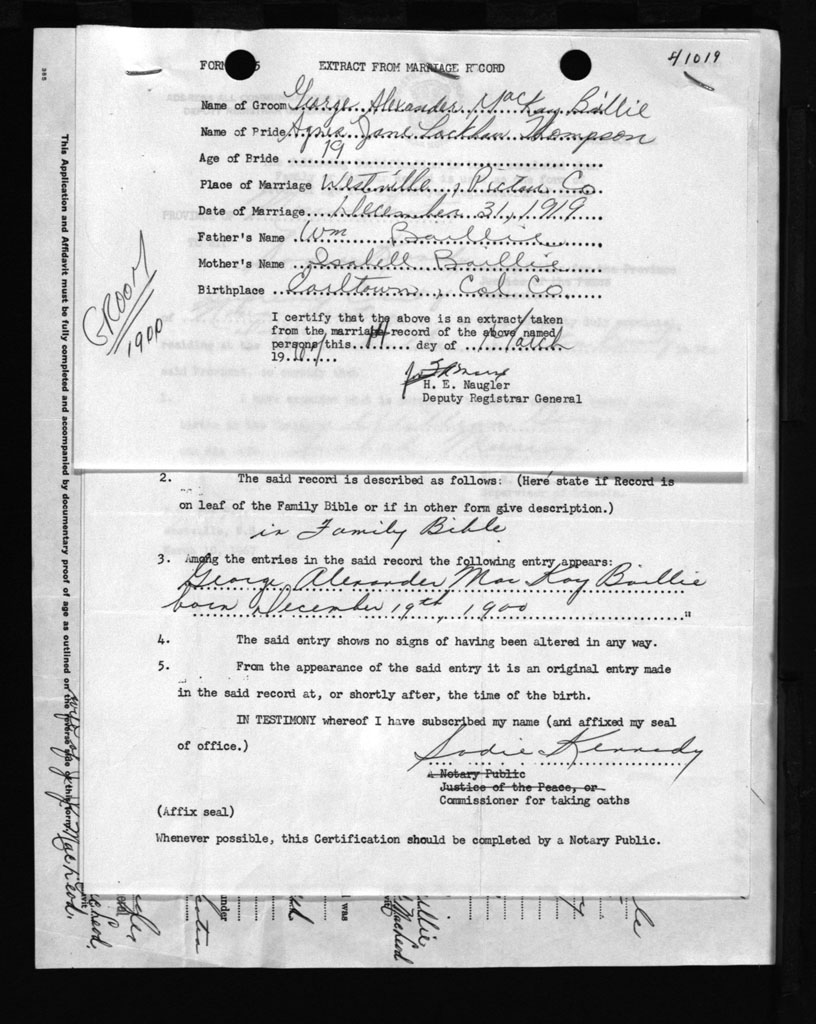 41019
FORM 5 EXTRACT FROM MARRIAGE RECORD
Name of Groom George Alexander MacKay Baillie
Name of Bride Agnes Jane Lockhau Thompson
Age of Bride 19
Place of Marriage Westville, Pictou Co.
Date of Marriage December 31, 1919
Father's Name Wm Baillie
Mother's Name Isabell Baillie
Birthplace Earltown, Col. Co.
GROOM
1900
I certify that the above is an extract taken
from the marriage record of the above named
persons this 14 day of March
19
H. E. Naugler
Deputy Registrar General
2. The said record is described as follows: (Here state if Record is
on leaf of the Family Bible or if in other form give description.)
in Family Bible
3. Among the entries in the said record the following entry appears:
George Alexander MacKay Baillie
born December 19th, 1900
4. The said entry shows no signs of having been altered in any way.
5. From the appearance of the said entry it is an original entry made
in the said record at, or shortly after, the time of the birth.
IN TESTIMONY whereof I have subscribed my name (and affixed my seal
of office.)
Sadie Kennedy
A Notary Public
Justice of the Peace, or
Commissioner for taking oaths
(Affix seal)
Whenever possible, this Certification should be completed by a Notary Public.
385
This Application and Affidavit must be fully completed and accompanied by documentary proof of age as outlined on the reverse side of this form
wife of MacLeod.
under
I was